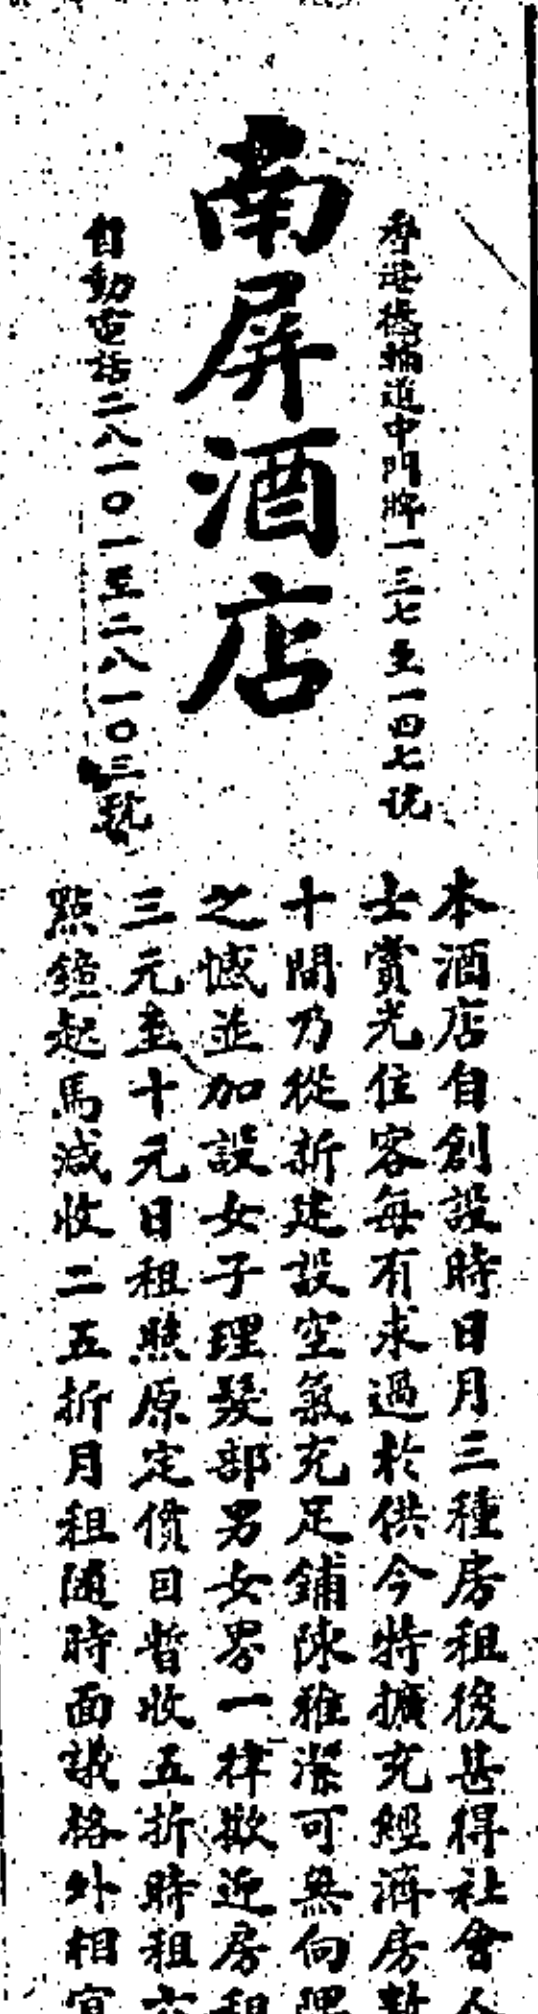 香港德輔道中門牌一三七至一四七號
南屏酒店
自動電話二八一〇一至二八一〇三號
本酒店自創設時日月三種房租後甚得社會人
士賞光住客每有求過於供今特擴充經濟房數
十間乃從新建設空氣充足鋪陳雅潔可無向隅
之憾並加設女子理髮部男女界一律歡迎房租
三元至十元日租照原定價目暫收五折時租六
點鐘起馬減收二五折月租隨時面議格外相宜